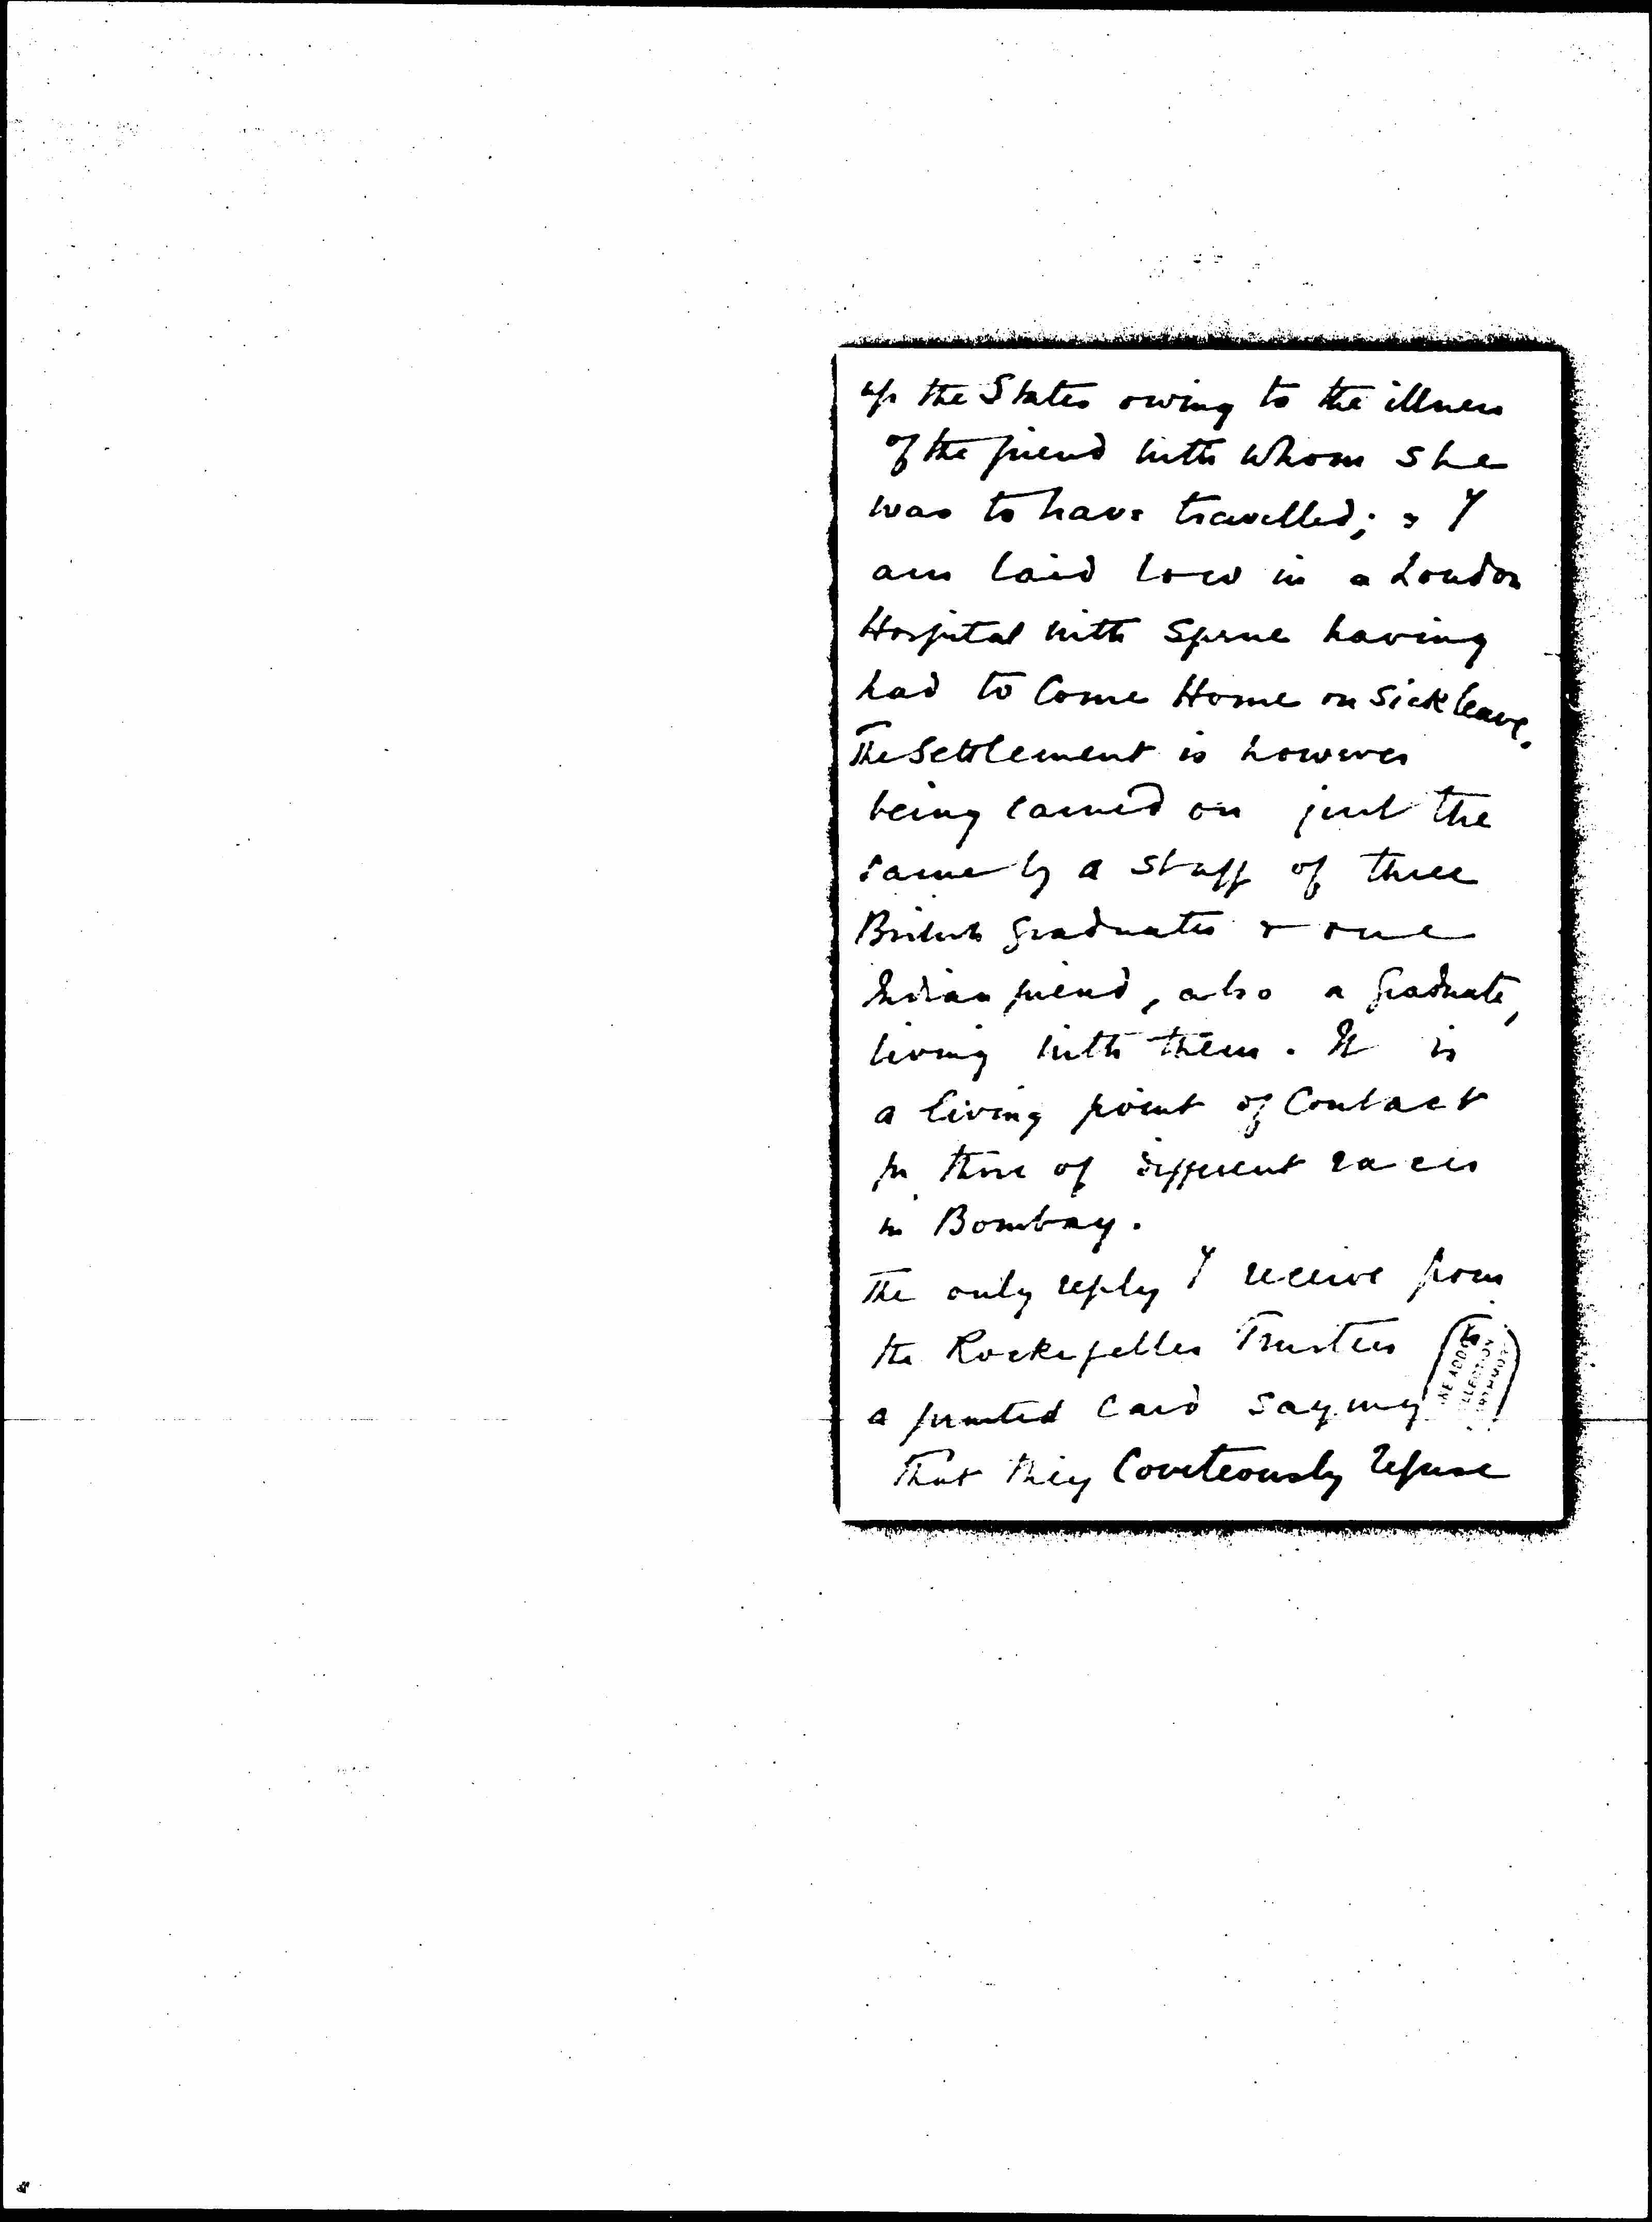 up the States owing to the illness
of the friend with whom she
was to have travelled; & I
am laid low in a London
Hospital with Sprue having
had to come Home on sick leave.
The Settlement is however
being carried on just the
same by a staff of three
British graduates & one
Indian friend, also a graduate,
living with them. It is
a living point of contact
for those of different races
in Bombay.
The only reply I receive from
the Rockefeller Trustees is
a printed card saying
that they courteously refuse